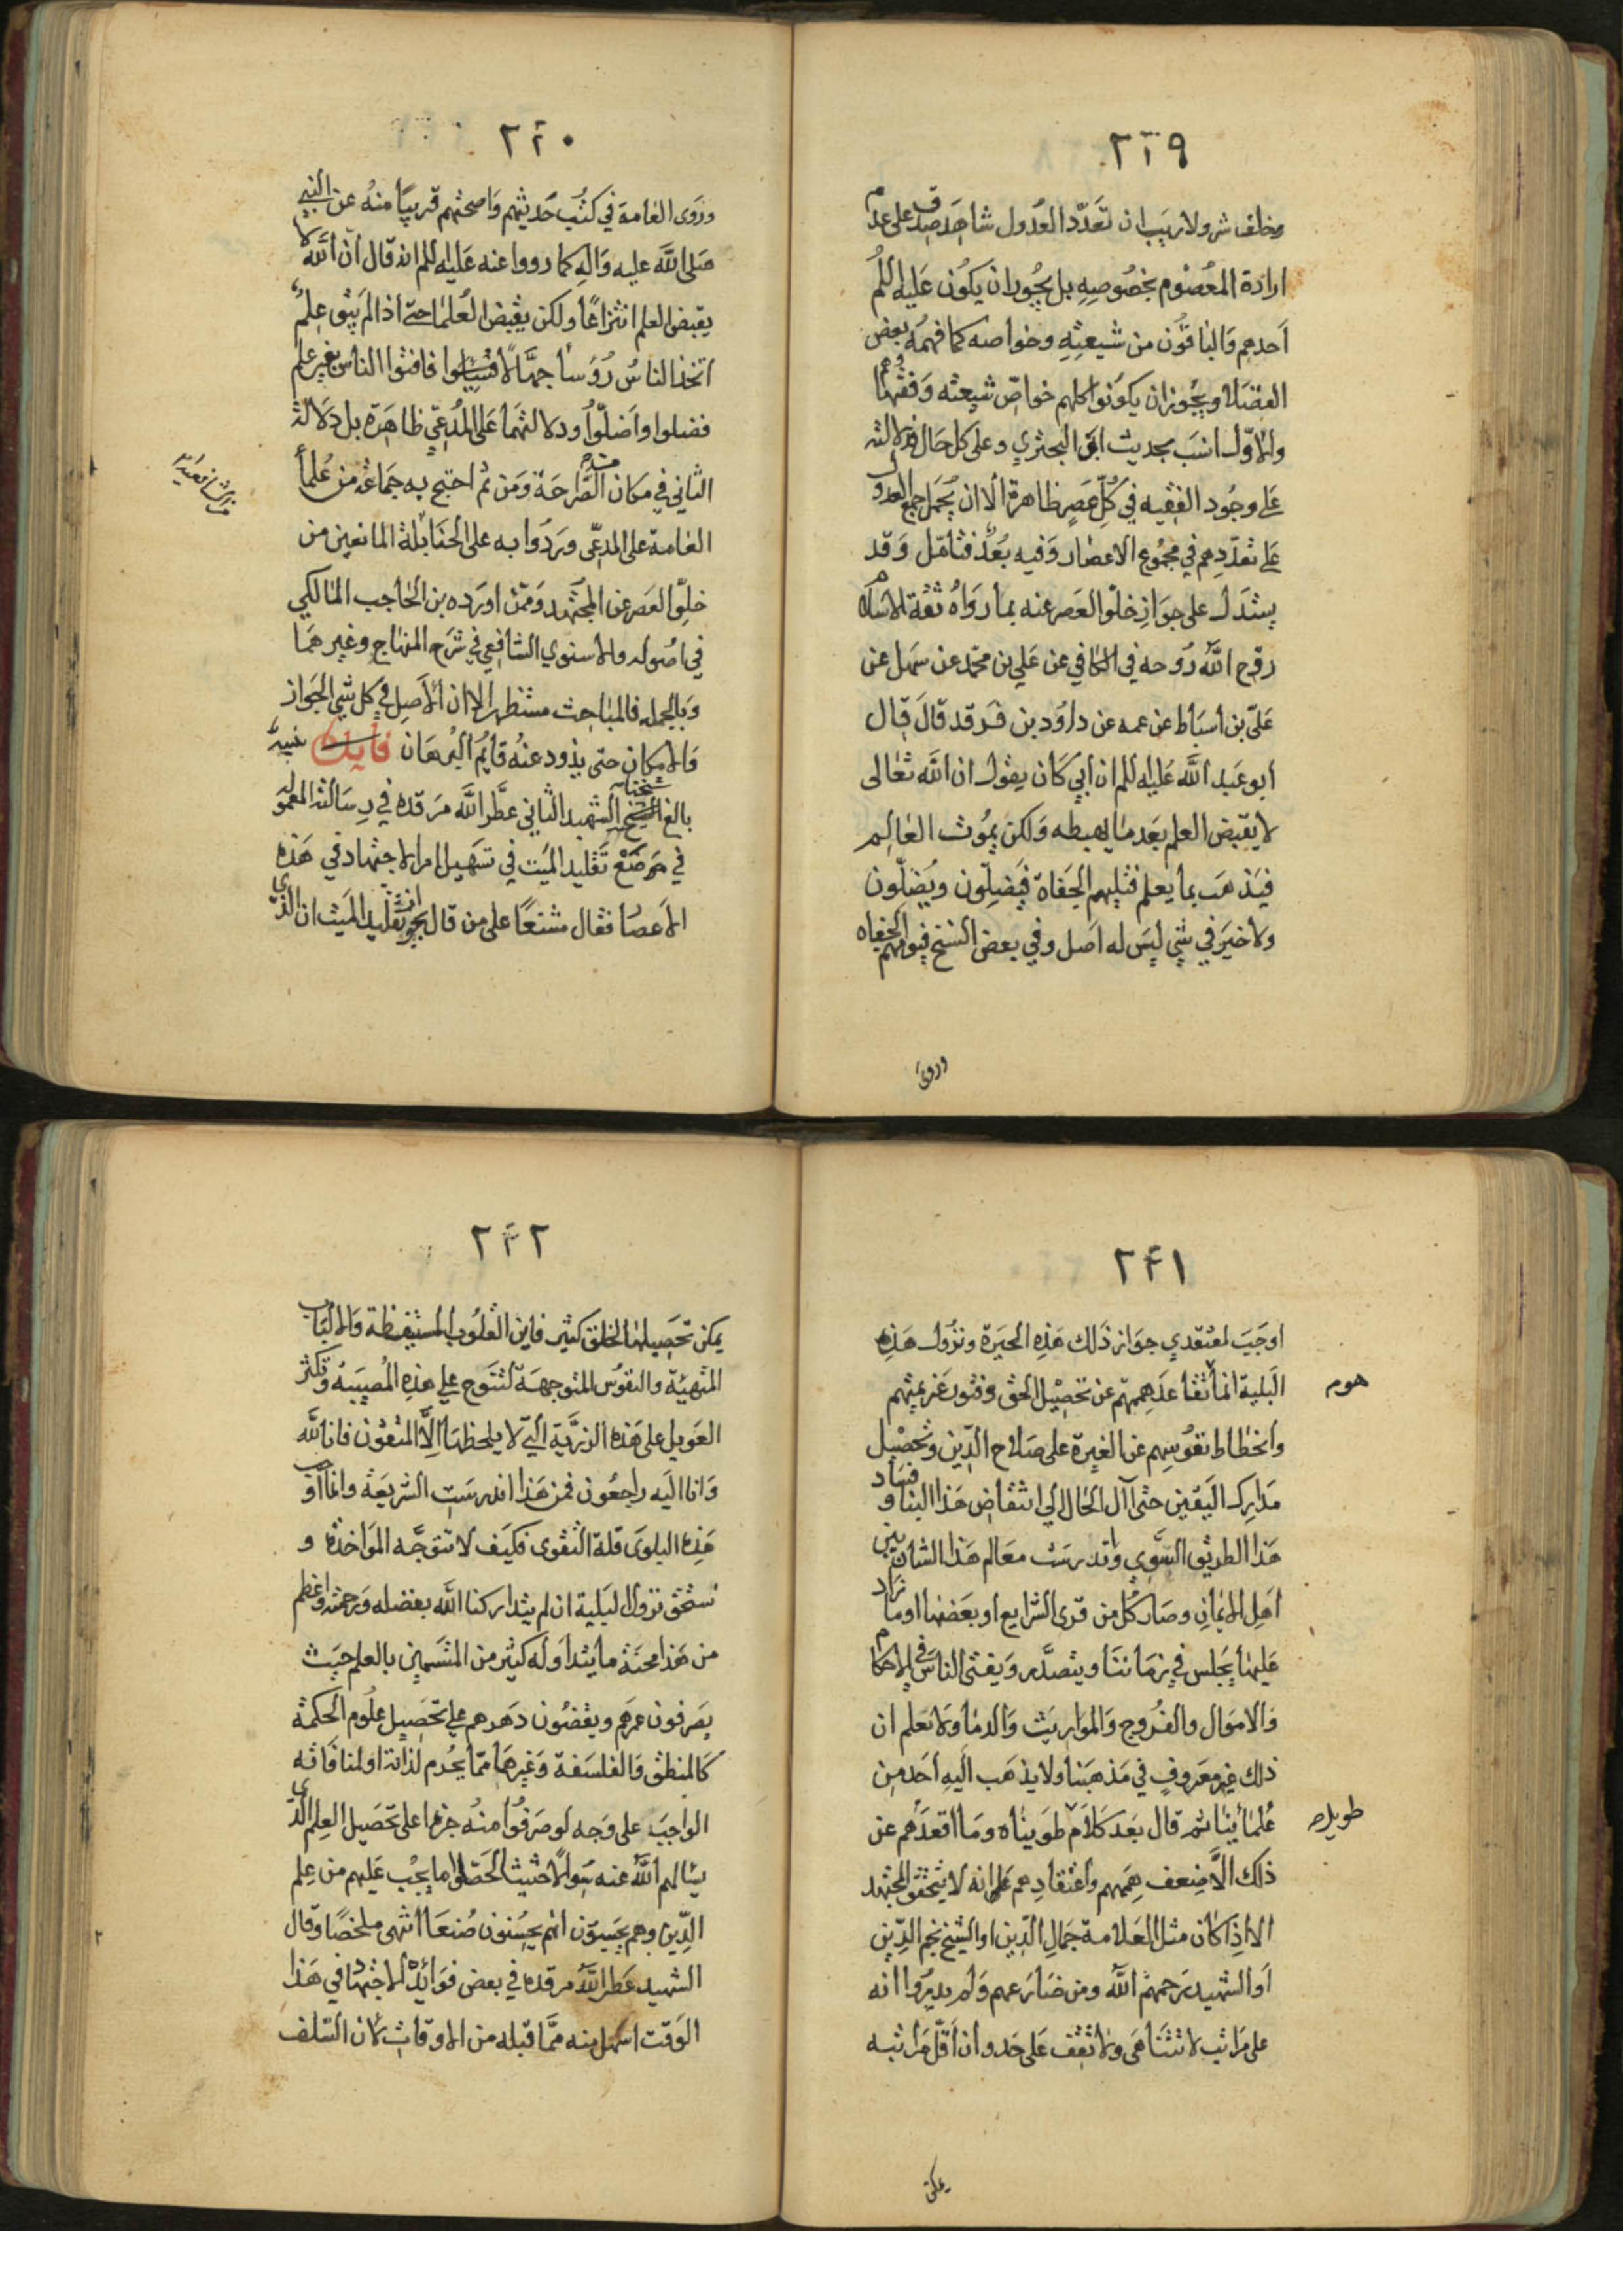 ٢٣٩
وخلف شر ولا ريب ان تعدد العدول شاهد صدق على عدم
ارادة المعصوم بخصوصه بل يجوز ان يكون عليه السلم
احدهم والباقون من شيعته وخواصه كما فهمه بعض
الفضلا ويجوز ان يكونوا كلهم خواص شيعته وفقهائهم
والاول انسب بحديث ابي البختري وعلى كل حال فدلالته
على وجود الفقيه في كل عصر ظاهرة الا ان يحمل جمع العدول
على تعددهم في مجموع الاعصار وفيه بعد فتامل وقد
يستدل على جواز خلو العصر عنه بما رواه ثقة الاسلام
روح الله روحه في الكافي عن علي بن محمد عن سهل عن
علي بن اسباط عن عمه عن داود بن فرقد قال قال
ابو عبد الله عليه السلم ان ابي كان يقول ان الله تعالى
لا يقبض العلم بعد ما يهبطه ولكن يموت العالم
فيذهب بما يعلم فتليهم الجفاة فيضلون ويضلون
ولا خير في شي ليس له اصل وفي بعض النسخ فيؤمهم الجفاه
وروى
٢٤٠
وروى العامة في كتب حديثهم واصحتهم قريبا منه عن النبي
صلى الله عليه واله كما رووا عنه عليه السلم انه قال ان الله لا
يقبض العلم انتزاعا ولكن يقبض العلما حتى اذا لم يبق عالم
اتخذ الناس رؤسا جهالا فسئلوا فافتوا الناس بغير علم
فضلوا واضلوا ودلالتهما على المدعي ظاهرة بل دلالة
الثاني في مكان الصراحة ومن ثم احتج به جماعة من علما
العامة على المدعى وردوا به على الحنابلة المانعين من
خلو العصر عن المجتهد وممن اورده بن الحاجب المالكي
في اصوله والاسنوي الشافعي في شرح المنهاج وغيرهما
وبالجمله فالمباحث مستظهر الا ان الاصل في كل شي الجواز
والامكان حتى يذود عنه قايم البرهان فايدة
بالغ شيخنا الشهيد الثاني عطر الله مرقده في رسالته المعموله
في موضع تقليد الميت في تسهيل امر الاجتهاد في هذه
الاعصار فقال مشنعا على من قال بجواز تقليد الميت ان الذي
٢٤١
اوجب لمعتقدي جواز ذلك هذه الحيرة ونزول هذه
البلية انما تقاعد هممهم عن تحصيل الحق وفتور عزيمتهم
هوم
وانحطاط نفوسهم عن الغيرة على صلاح الدين وتحصيل
مدارك اليقين حتى آل الحال الى انتقاض هذا البنا وفساد
هذا الطريق السوي واندرست معالم هذا الشان بين
اهل الايمان وصار كل من قرى الشرايع او بعضها او ما زاد
عليها يجلس في زماننا ويتصدر ويفتى الناس في الاحكام
والاموال والفروج والمواريث والدما ولا يعلم ان
ذلك غير معروف في مذهبنا ولا يذهب اليه احد من
علمائنا ثم قال بعد كلام طويناه وما اقعدهم عن
طويل
ذلك الا ضعف هممهم واعتقادهم على انه لا يتحقق المجتهد
الا اذا كان مثل العلامة جمال الدين او الشيخ نجم الدين
او الشهيد رحمهم الله ومن ضارعهم ولم يدروا انه
على مراتب لا تتناهى ولا تقف على حد وان اقل مراتبه
يمكن
٢٤٢
يمكن تحصيلها لخلق كثير فاين القلوب المستيقظة والالباب
المتهيئة والنفوس المتوجهة لتنوح على هذه المصيبة وتكثر
العويل على هذه الرزية التي لا يلحظها الا المتقون فانا لله
وانا اليه راجعون فمن هذا اندرست الشريعة وانما اوجب
هذه البلوى قلة التقوى فكيف لا تتوجه المواخذة و
نستحق نزول البلية ان لم يتداركنا الله بفضله ورحمته واعظم
من هذا محنة ما يتداوله كثير من المتسمين بالعلم حيث
يصرفون عمرهم ويقضون دهرهم على تحصيل علوم الحكمة
كالمنطق والفلسفة وغيرها مما يحرم لذاته او لمنافاته
الواجب على وجه لو صرفوا منه جزءا على تحصيل العلم الذي
يسالهم الله عنه سوالا حثيثا لحصلوا ما يجب عليهم من علم
الدين وهم يحسبون انهم يحسنون صنعا انتهى ملخصا وقال
الشهيد عطر الله مرقده في بعض فوائده الاجتهاد في هذا
الوقت اسهل منه مما قبله من الاوقات لان السلف